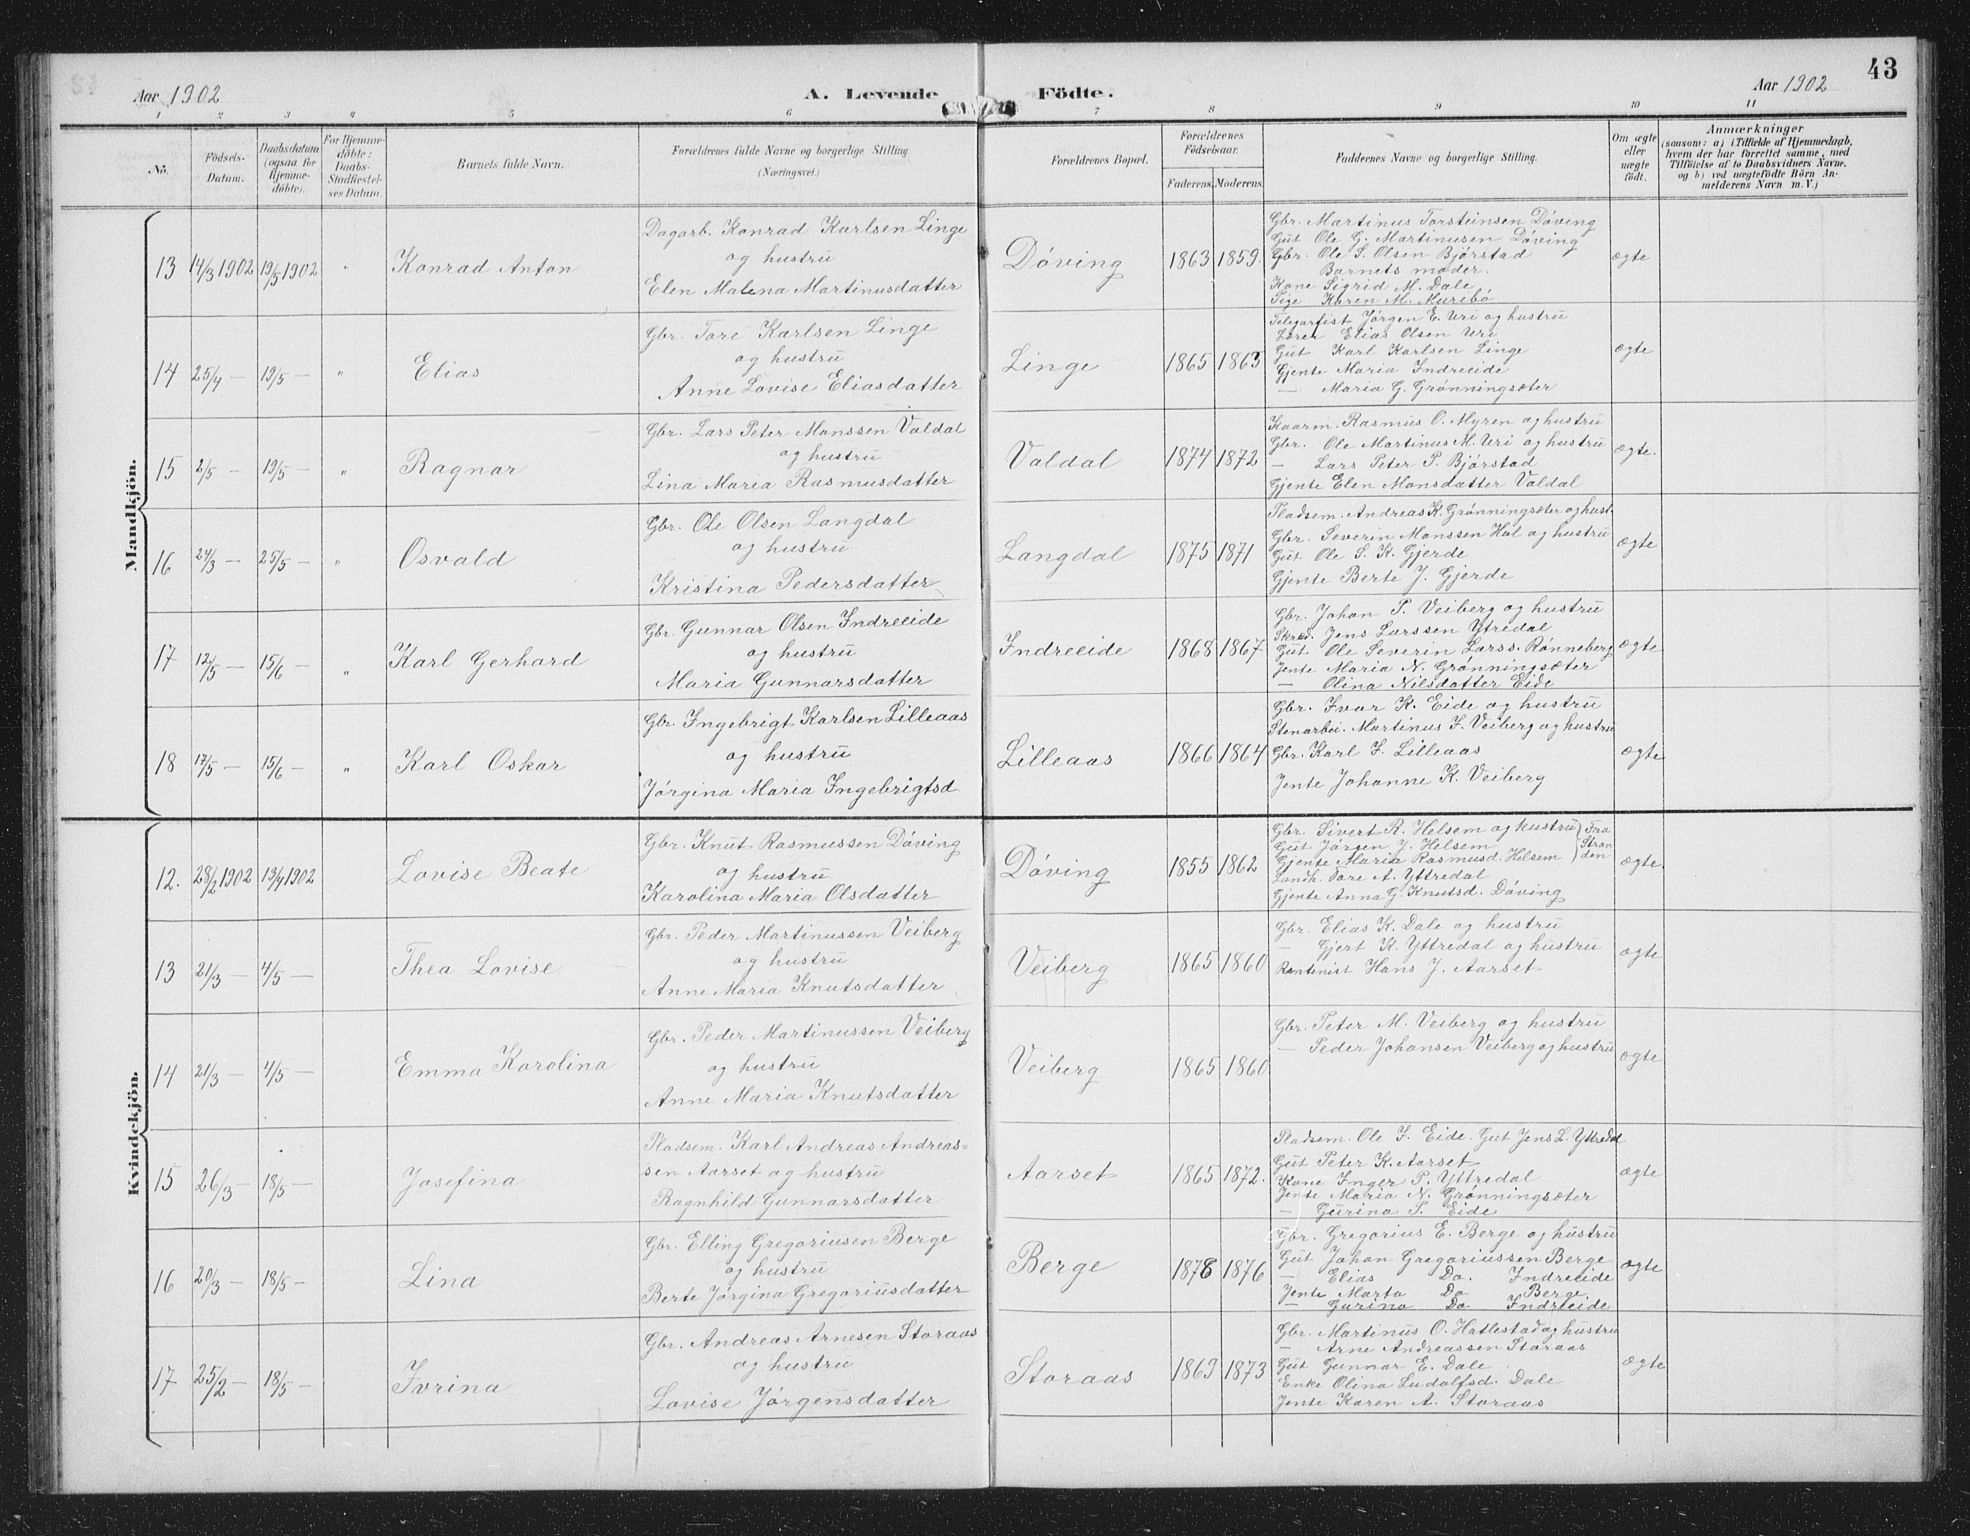 43
Aar 1902
A. Levende Födte.
Aar 1902
1 2 3 4 5 6 7 8 9 10 11
No.
Födsels-
Datum.
Daabsdatum
(ogsaa for
Hjemme-
döbte).
For Hjemme-
döbte:
Daabs-
Stadfæstel-
ses Datum.
Barnets fulde Navn.
Forældrenes fulde Navne og borgerlige Stilling
(Næringsvei.)
Forældrenes Bopæl.
Forældrenes
Födselsaar.
Faderens. Moderens.
Faddernes Navne og borgerlige Stilling.
Om ægte
eller
uægte
födt.
Anmærkninger
(saasom: a) i Tilfælde af Hjemmedaab,
hvem der har forrettet samme, med
Tilföielse af to Daabsvidners Navne,
og b) ved uægtefödte Börn An-
melderens Navn m. V.)
Mandkjön.
13 14/3 1902 19/5 1902 " Konrad Anton
Dagarb. Konrad Karlsen Linge
og hustru
Elen Malena Martinusdatter
Döving 1863 1859.
Gbr. Martinus Torsteinsen Döving
Gut Ole G. Martinusen Döving
Gbr. Ole S. Olsen Bjørstad
Barnets moder.
Kone Sigrid M. Dale
Pige Karen M. Muribö
ægte
14 25/4 — 19/5 — " Elias
Gbr. Tore Karlsen Linge
og hustru
Anne Lovise Eliasdatter
Linge 1865 1863
Telegarfist Jörgen E. Uri og hustru
Lören Elias Olsen Uri
Gut Karl Karlsen Linge
Gjente Maria Indreeide
— Maria G. Grönningsæter
ægte
15 2/5 — 19/5 — " Ragnar
Gbr. Lars Peter Monssen Valdal
og hustru
Lina Maria Rasmusdatter
Valdal 1874 1872
Kaarm. Rasmus O. Myren og hustru
Gbr. Ole Martinus M. Uri og hustru
— Lars Peter P. Bjørstad
Gjente Elen Monsdatter Valdal
ægte.
16 24/3 — 25/5 — " Osvald
Gbr. Ole Olsen Langdal
og hustru
Kristina Pedersdatter
Langdal 1875 1871
Pladsem. Andreas K. Grönningsæter og hust.
Gbr. Severin Monssen Hol og hustru
Gut Ole S. K. Gjerde
Gjente Berte J. Gjerde
ægte
17 12/5 — 15/6 — " Karl Gerhard
Gbr. Gunnar Olsen Indreeide
og hustru
Maria Gunnarsdatter
Indreeide 1868 1867
Gbr. Johan P. Veiberg og hustru
Skræd. Jens Larssen Ytredal
Gut Ole Severin Larss. Rönneberg
Jente Maria N. Grönningsæter
— Olina Nilsdatter Eide
ægte
18 17/5 — 15/6 — " Karl Oskar
Gbr. Ingebrigt Karlsen Lilleaas
og hustru
Jörgina Maria Ingebrigtsd.
Lilleaas 1866 1864
Gbr. Ivar K. Eide og hustru
Stenarbei. Martinus I. Veiberg og hustru
Gbr. Karl I. Lilleaas
Jente Johanne K. Veiberg
ægte
Kvindekjön.
12. 28/2 1902 13/4 1902 Lovise Beate
Gbr. Knut Rasmussen Döving
og hustru
Karolina Maria Olsdatter
Döving 1855 1862
Gbr. Sivert R. Helsem og hustru
Gut Jörgen J. Helsem
Gjente Maria Rasmusd. Helsem
Fra
Stran
den
Landh. Tore A. Yttredal
Gjente Anna G. Knutsd. Döving
ægte.
13 21/3 — 4/5 — Thea Lovise
Gbr. Peder Martinussen Veiberg
og hustru
Anne Maria Knutsdatter
Veiberg 1865 1860
Gbr. Elias K. Dale og hustru
— Gjert K. Yttredal og hustru
Rentinist Hans J. Aarset
ægte
14 21/3 — 4/5 — Emma Karolina
Gbr. Peder Martinussen Veiberg
og hustru
Anne Maria Knutsdatter
Veiberg 1865 1860
Gbr. Peter M. Veiberg og hustru
— Peder Johansen Veiberg og hustru
ægte
15 26/3 — 18/5 — Josefina
Pladsem. Karl Andreas Andreas=
sen Aarset og hustru
Ragnhild Gunnarsdatter
Aarset 1865 1872.
Pladsem. Ole I. Eide. Gut Jens L. Yttredal
Gut Peter K. Aarset
Kone Inger P. Yttredal
Jente Maria N. Grönningsæter
— Gurina P. Eide
ægte
16 20/3 — 18/5 — Lina
Gbr. Elling Gregoriusen Berge
og hustru
Berte Jörgina Gregoriusdatter
Berge 1878 1876
Gbr. Gregorius E. Berge og hustru
Gut Johan Gregoriussen Berge
— Elias Do. Indreeide
Jente Marta Do Berge
— Gurina Do Indreeide
ægte
17 25/2 — 18/5 — Ivrina
Gbr. Andreas Arnesen Storaas
og hustru
Lovise Jörgensdatter
Storaas 1869 1873
Gbr. Martinus O. Hatlestad og hustru
— Arne Andreassen Storaas
Gut Gunnar E. Dale
Enke Olina Ludolfsd. Dale
Jente Karen A. Storaas
ægte